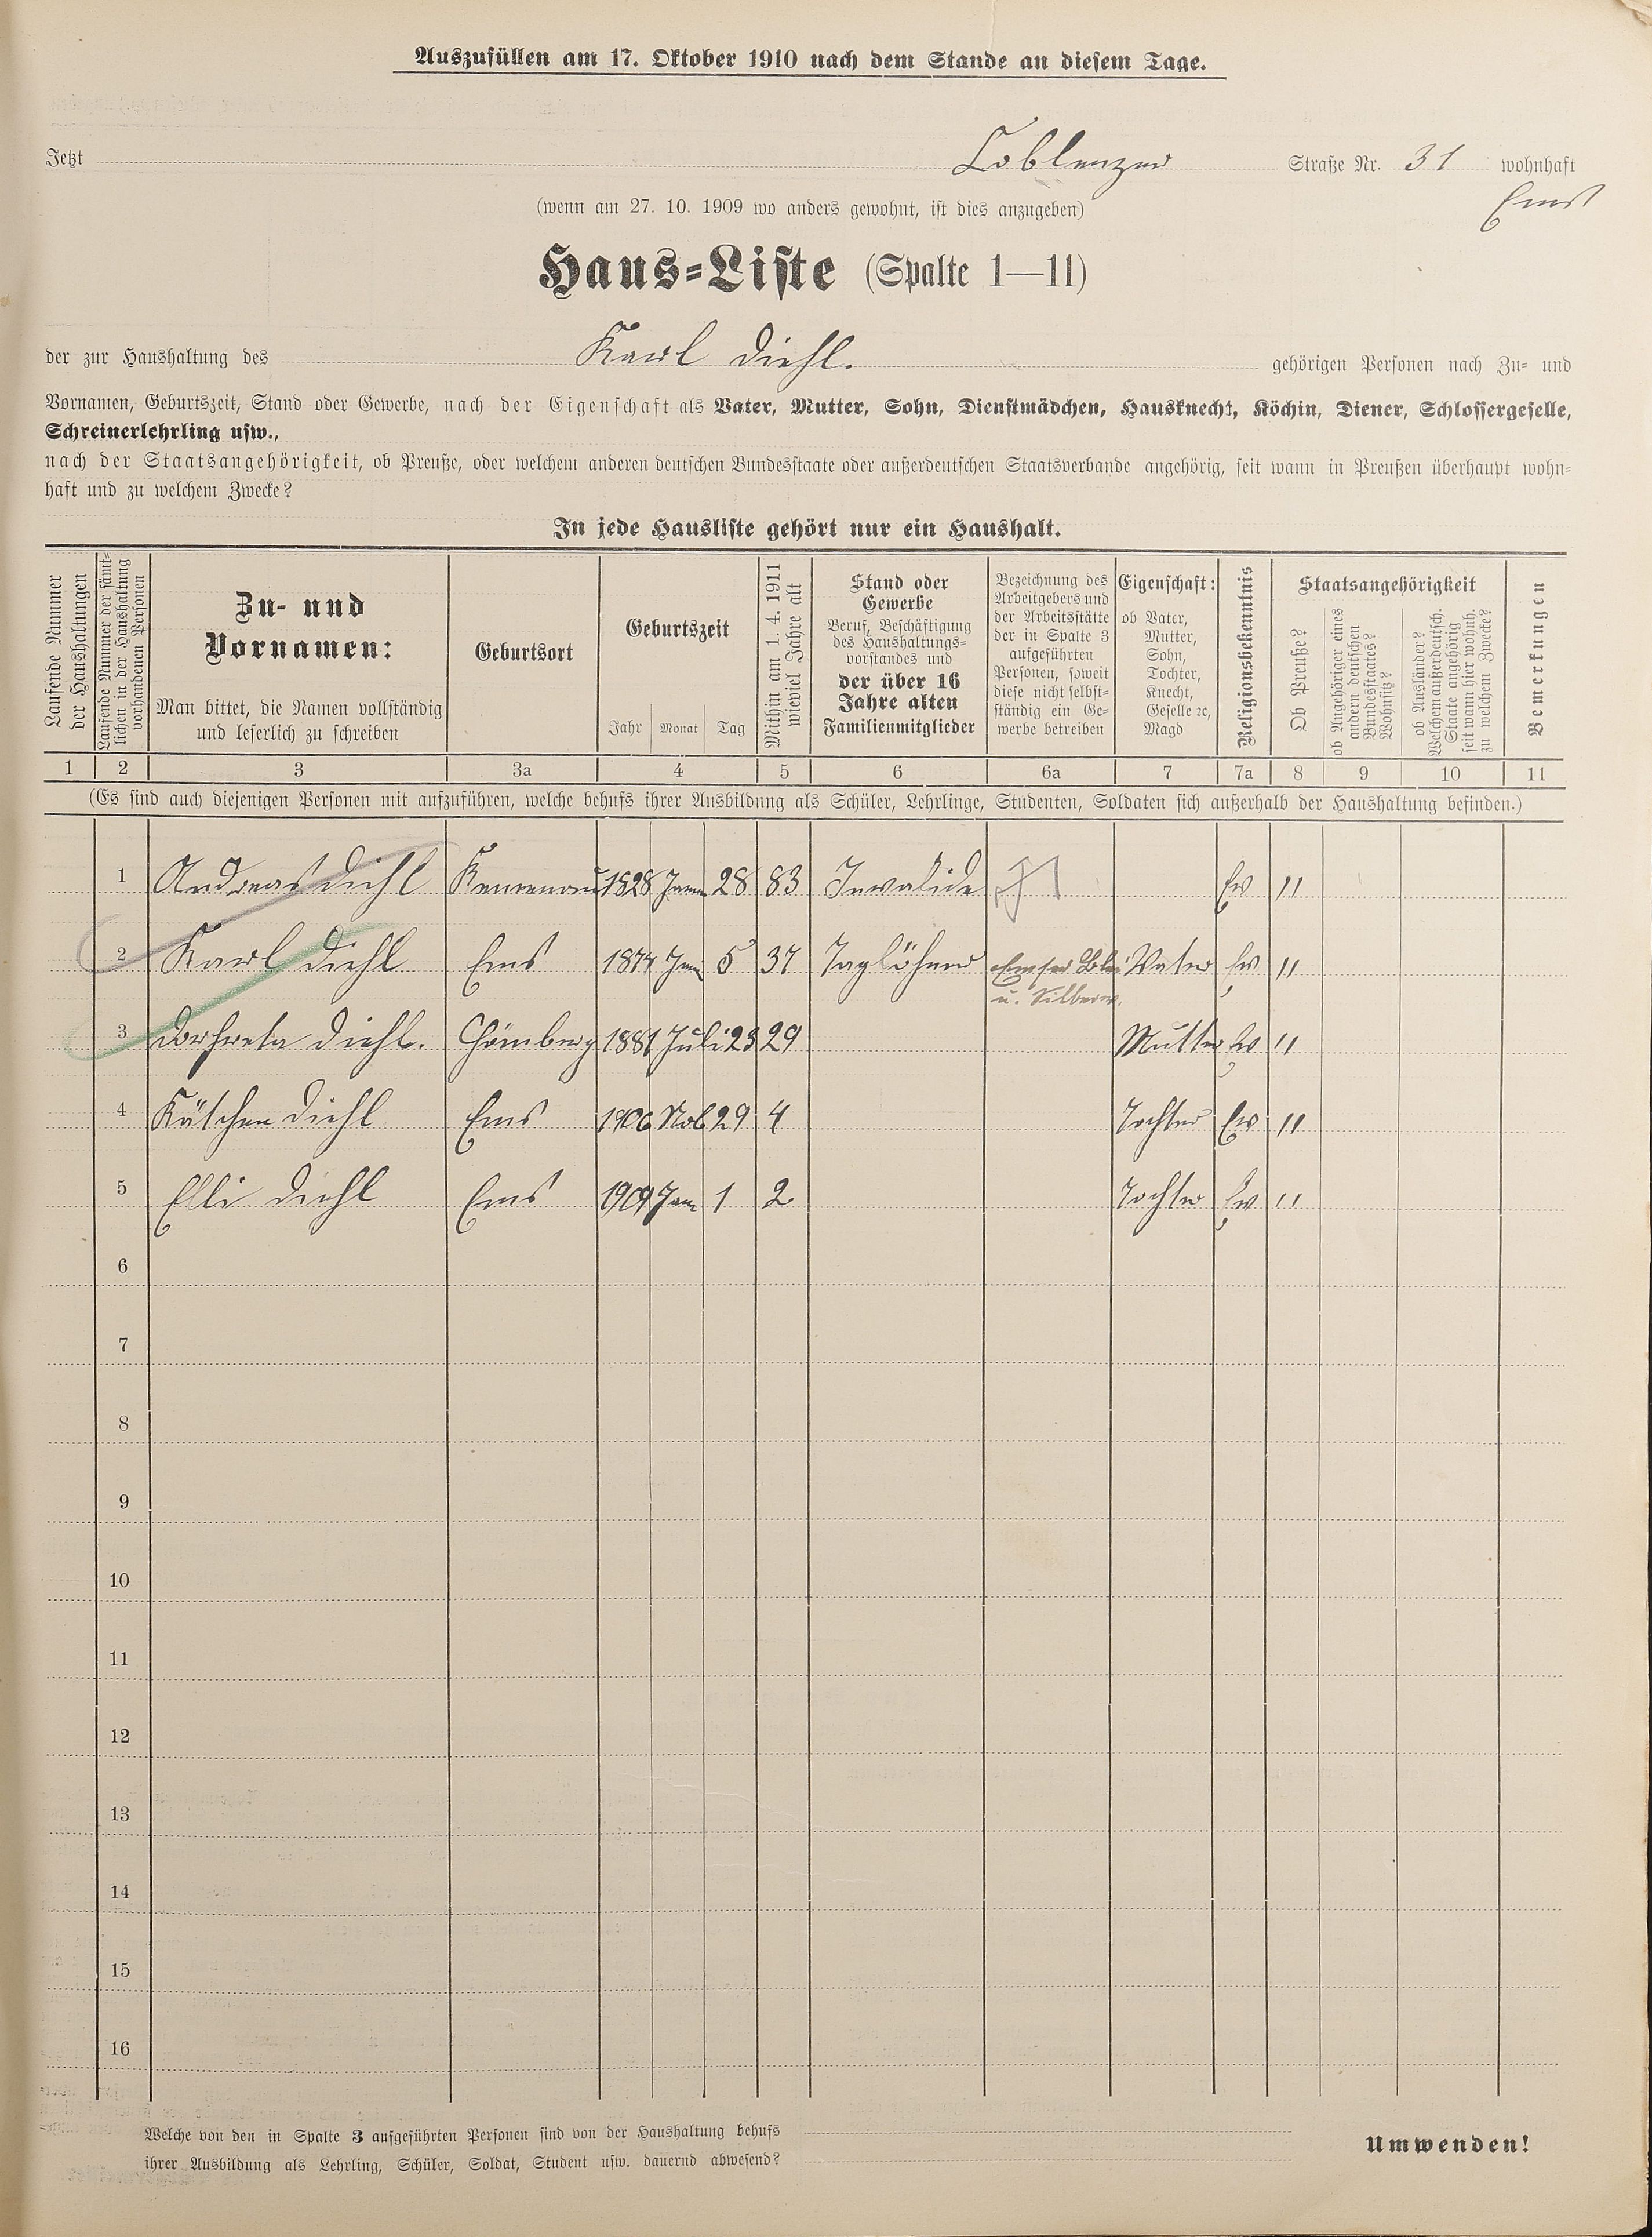 Auszufüllen am 17. Oktober 1910 nach dem Stande an diesem Tage.
Jetzt Coblenzer Straße Nr. 31 wohnhaft
Ems
(wenn am 27. 10. 1909 wo anders gewohnt, ist dies anzugeben)
Haus-Liste (Spalte 1—11)
der zur Haushaltung des Karl Diehl. gehörigen Personen nach Zu- und
Vornamen, Geburtszeit, Stand oder Gewerbe, nach der Eigenschaft als Vater, Mutter, Sohn, Dienstmädchen, Hausknecht, Köchin, Diener, Schlossergeselle,
Schreinerlehrling usw.,
nach der Staatsangehörigkeit, ob Preuße, oder welchem anderen deutschen Bundesstaate oder außerdeutschen Staatsverbande angehörig, seit wann in Preußen überhaupt wohn-
haft und zu welchem Zwecke?
In jede Hausliste gehört nur ein Haushalt.
Laufende Nummer
der Haushaltungen
Laufende Nummer der sämt-
lichen in der Haushaltung
vorhandenen Personen
Zu- und
Vornamen:
Man bittet, die Namen vollständig
und leserlich zu schreiben
Geburtsort
Geburtszeit
Jahr Monat Tag
Mithin am 1. 4. 1911
wieviel Jahre alt
Stand oder
Gewerbe
Beruf, Beschäftigung
des Haushaltungs-
vorstandes und
der über 16
Jahre alten
Familienmitglieder
Bezeichnung des
Arbeitgebers und
der Arbeitsstätte
der in Spalte 3
aufgeführten
Personen, soweit
diese nicht selbst-
ständig ein Ge-
werbe betreiben
Eigenschaft:
ob Vater,
Mutter,
Sohn,
Tochter,
Knecht,
Geselle ꝛc,
Magd
Religionsbekenntnis
Staatsangehörigkeit
Ob Preuße?
ob Angehöriger eines
andern deutschen
Bundesstaates?
Wohnsitz?
ob Ausländer?
Welchem außerdeutsch.
Staate angehörig
seit wann hier wohnh.
zu welchem Zwecke?
Bemerkungen
1 2 3 3a 4 5 6 6a 7 7a 8 9 10 11
(Es sind auch diejenigen Personen mit aufzuführen, welche behufs ihrer Ausbildung als Schüler, Lehrlinge, Studenten, Soldaten sich außerhalb der Haushaltung befinden.)
1 Andreas Diehl Kemmenau 1828 Jan 28 83 Invalide Ev "
2 Karl Diehl Ems 1874 5 37 Taglöhner Emser Blei Vater Ev "
u. Silberw.
3 Diehl. 1881 Juli 23 29 Mutter Ev "
4 Kätchen Diehl Ems 1906 Nov 29 4 Tochter Ev "
5 Elli Diehl Ems 1909 Jan 1 2 Tochter Ev "
6
7
8
9
10
11
12
13
14
15
16
Welche von den in Spalte 3 aufgeführten Personen sind von der Haushaltung behufs
ihrer Ausbildung als Lehrling, Schüler, Soldat, Student usw. dauernd abwesend?
Umwenden!